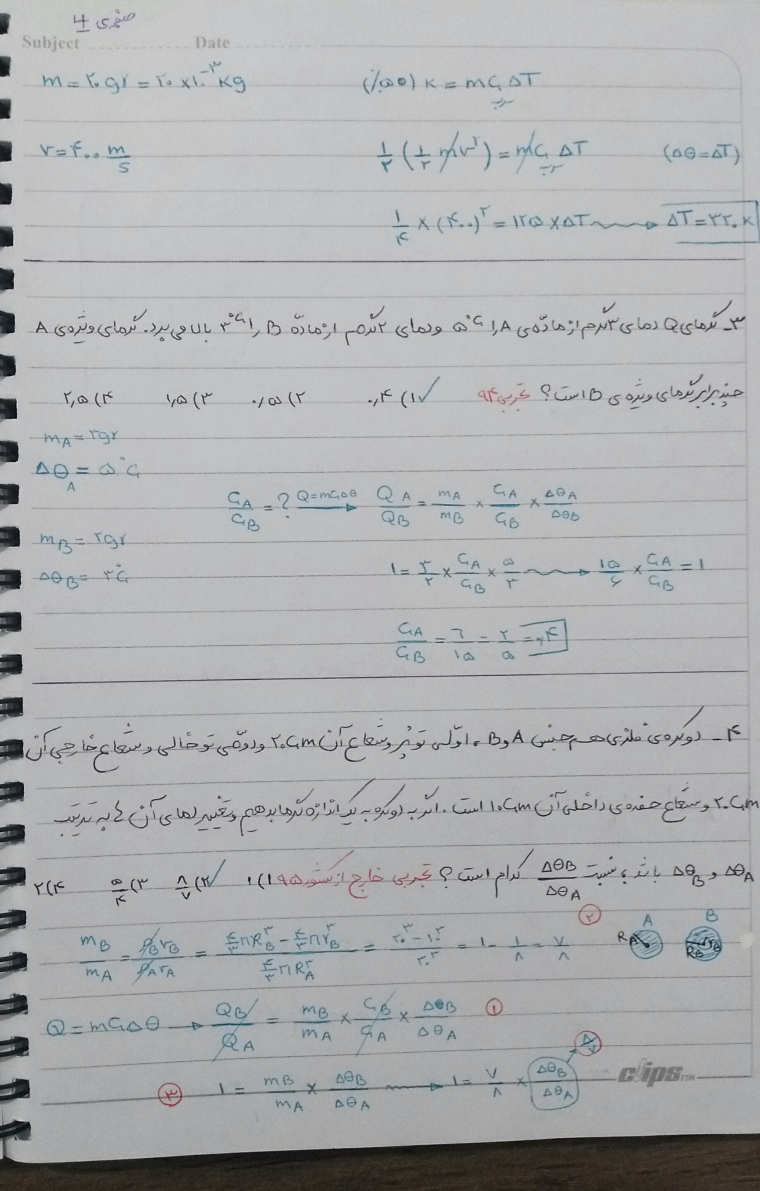 صفحه‌ی 4
Subject ............ Date ............
m = ۲۰gr = ۲۰ ×۱۰⁻³ kg
(٪۵۰) K = mc ΔT
v = ۴۰۰ m/s
۱/۲ (۱/۲ mv²) = mc ΔT (Δθ = ΔT)
۱/۴ × (۴۰۰)² = ۱۲۵ × ΔT → ΔT = ۳۲۰ K
۳- گرمای Q دمای ۳گرم از ماده‌ی A را ۵°C و دمای ۲گرم از ماده B را ۳°C بالا می‌برد. گرمای ویژه‌ی A
چند برابر گرمای ویژه‌ی B است؟ تجربی ۹۴ ۱) ۰,۴ ✓ ۲) ۰,۵ ۳) ۱,۵ ۴) ۲,۵
m_A = ۳gr
Δθ_A = ۵°C
C_A/C_B = ? Q=mcΔθ → Q_A/Q_B = m_A/m_B × C_A/C_B × Δθ_A/Δθ_B
m_B = ۲gr
Δθ_B = ۳°C
۱ = ۳/۲ × C_A/C_B × ۵/۳ → ۱۵/۶ × C_A/C_B = ۱
C_A/C_B = ۶/۱۵ = ۲/۵ = ۰,۴
۴- دو کره‌ی فلزی هم جنس A و B، اولی توپر و شعاع آن ۲۰cm و دومی توخالی و شعاع خارجی آن
۲۰cm و شعاع حفره‌ی داخلی آن ۱۰cm است. اگر به دو کره به یک اندازه گرما بدهیم و تغییر دمای آن ها به ترتیب
Δθ_A و Δθ_B باشد، نسبت Δθ_B/Δθ_A کدام است؟ تجربی خارج از کشور ۹۵ ۱) ۱ ۲) ۸/۷ ✓ ۳) ۵/۴ ۴) ۲
m_B/m_A = ρ_B v_B/ρ_A v_A = (۴/۳ πR_B³ − ۴/۳ πr_B³)/(۴/۳ πR_A³) = (۲۰³ − ۱۰³)/۲۰³ = ۱ − ۱/۸ = ۷/۸ ②
A B
R_A R_B r_B
Q = mcΔθ → Q_B/Q_A = m_B/m_A × C_B/C_A × Δθ_B/Δθ_A ①
③ ۱ = m_B/m_A × Δθ_B/Δθ_A → ۱ = ۷/۸ × Δθ_B/Δθ_A ۸/۷
clips